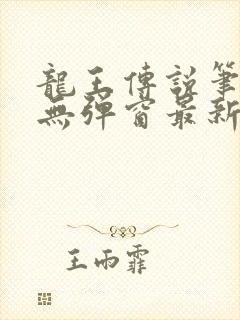 龍王傳說筆
無彈窗最新
王雨霏